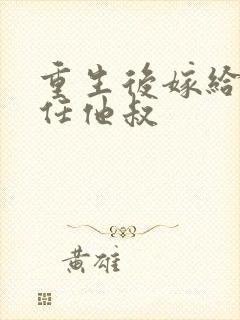 重生後嫁給
任他叔
黃雄